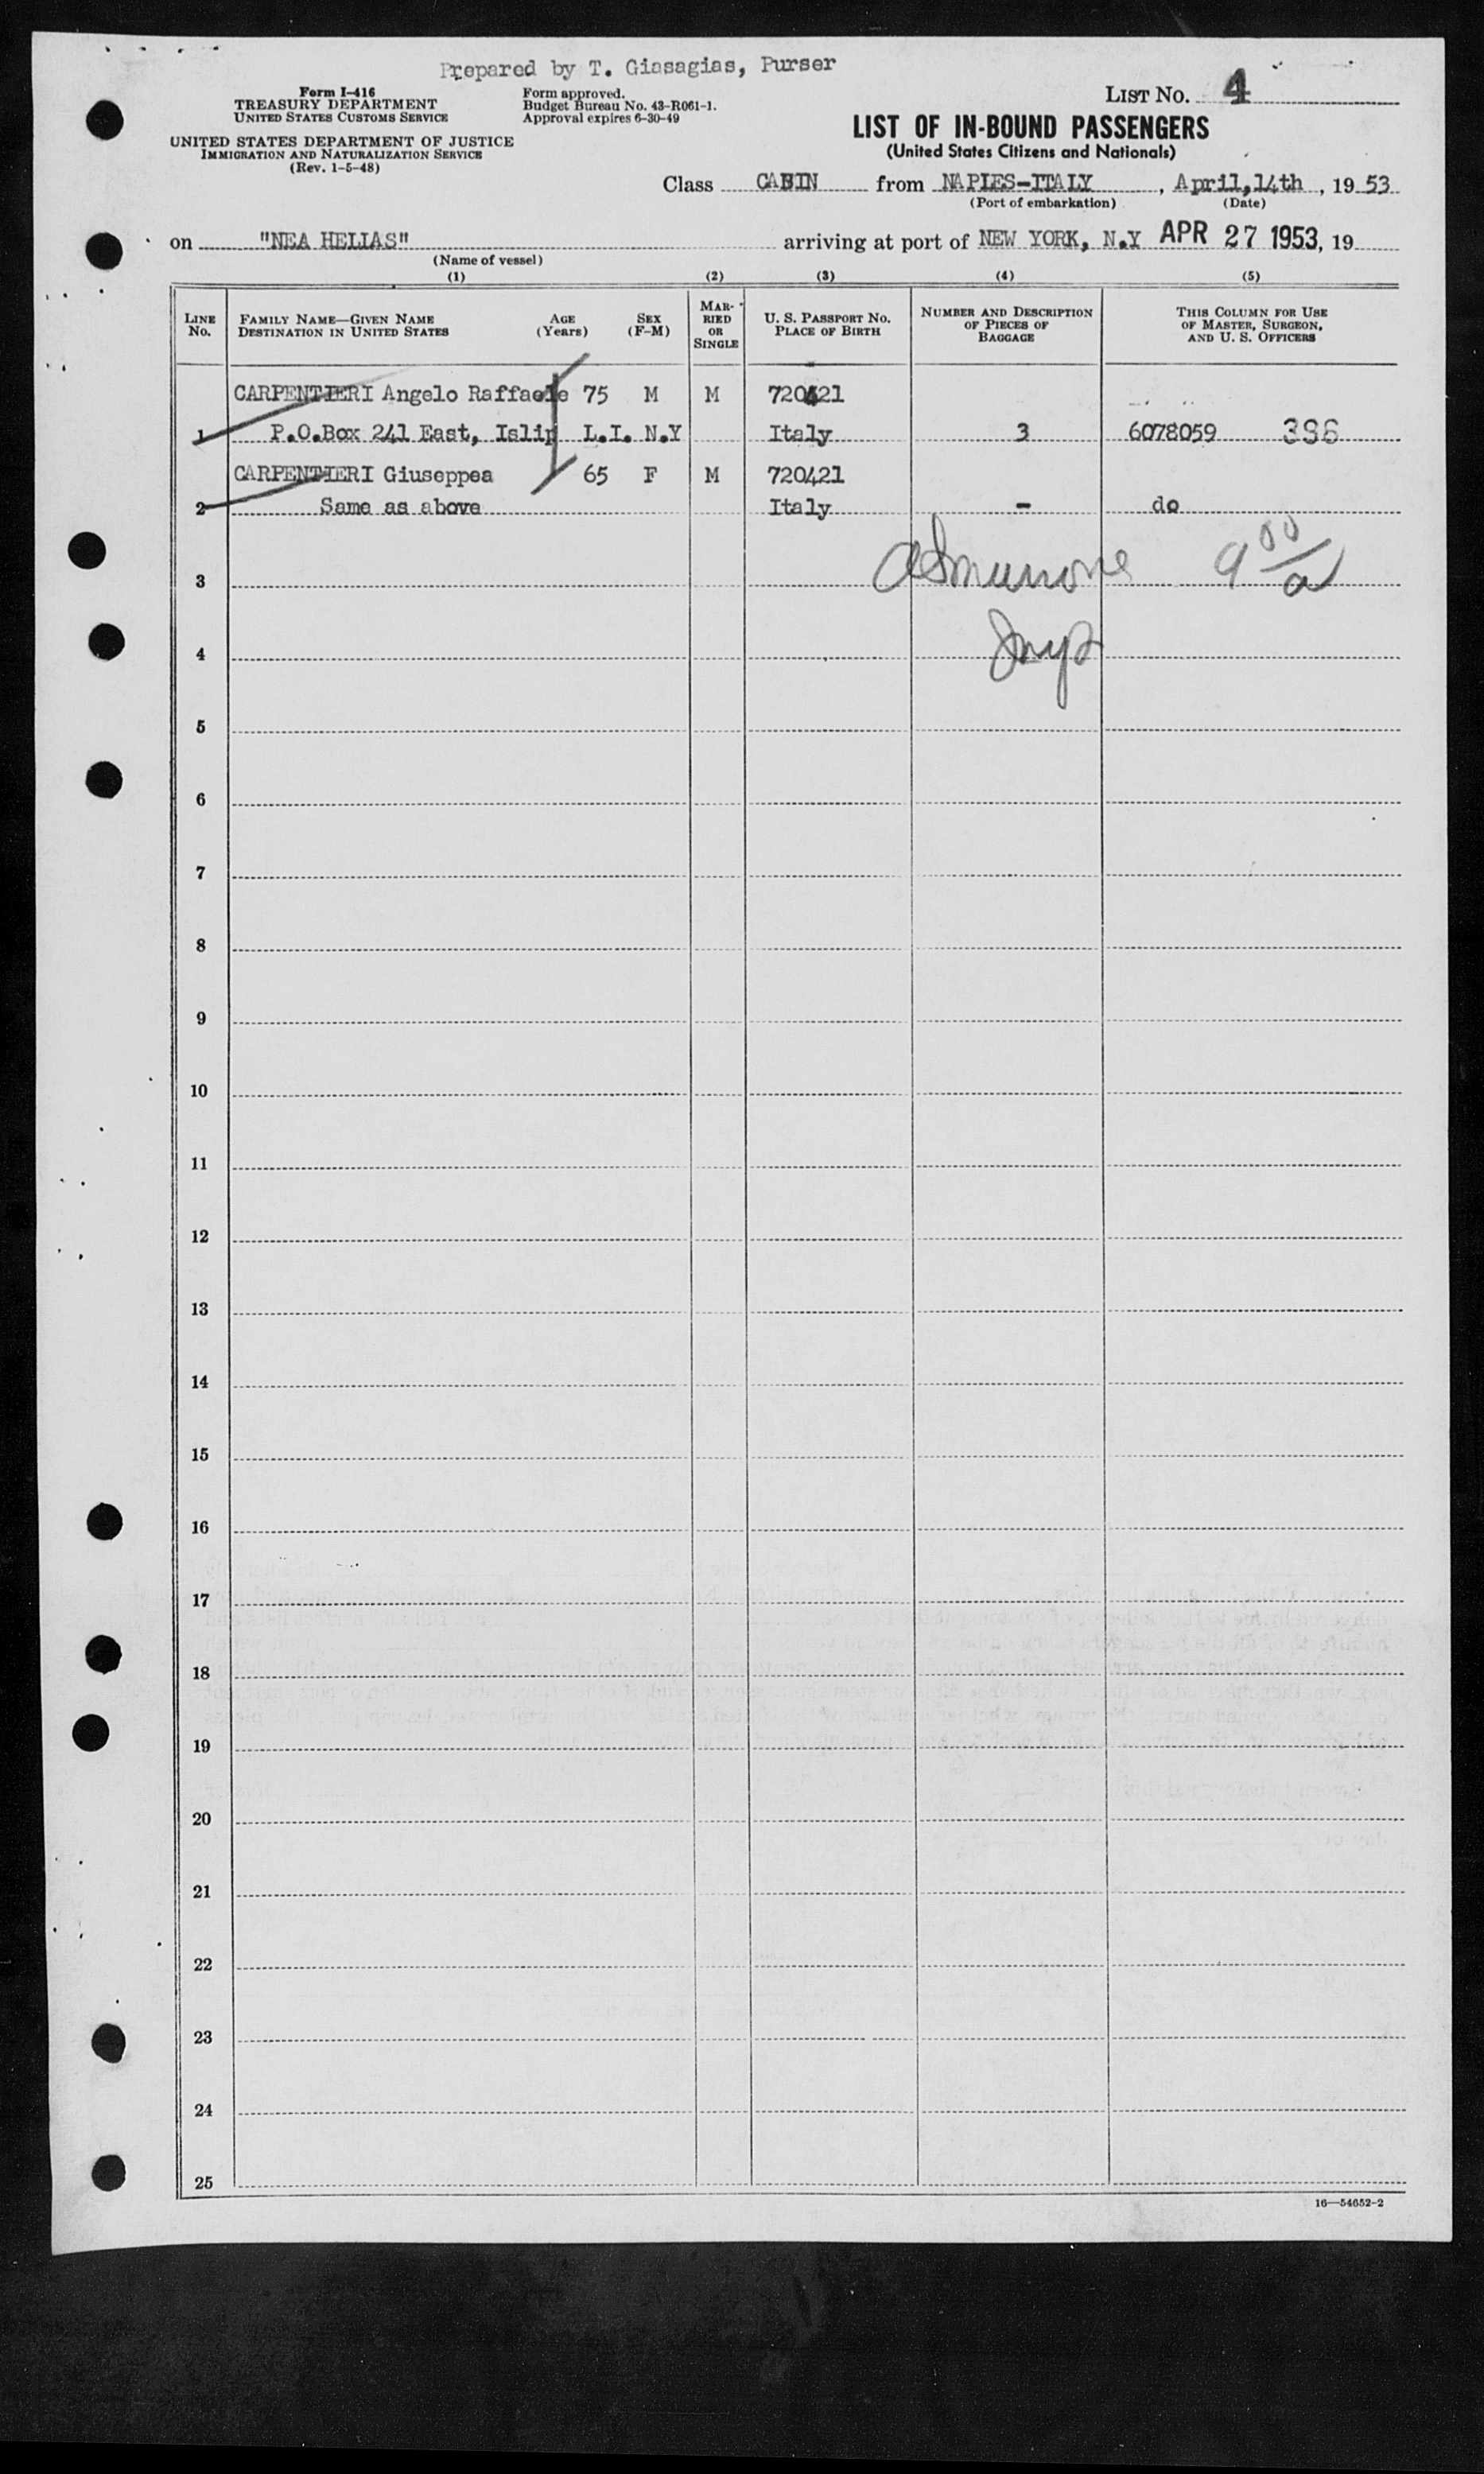 Prepared by T. Giasagias, Purser
Form I-416
TREASURY DEPARTMENT
UNITED STATES CUSTOMS SERVICE
UNITED STATES DEPARTMENT OF JUSTICE
IMMIGRATION AND NATURALIZATION SERVICE
(Rev. 1-5-48)
Form approved.
Budget Bureau No. 43-R061-1.
Approval expires 6-30-49
LIST No. 4
LIST OF IN-BOUND PASSENGERS
(United States Citizens and Nationals)
Class CABIN from NAPLES-ITALY, April,14th, 19 53
(Port of embarkation) (Date)
on "NEA HELIAS" arriving at port of NEW YORK, N.Y APR 27 1953, 19
(Name of vessel)
(1) (2) (3) (4) (5)
LINE No. FAMILY NAME—GIVEN NAME DESTINATION IN UNITED STATES AGE (Years) SEX (F-M) MARRIED OR SINGLE U. S. PASSPORT No. PLACE OF BIRTH NUMBER AND DESCRIPTION OF PIECES OF BAGGAGE THIS COLUMN FOR USE OF MASTER, SURGEON, AND U. S. OFFICERS
CARPENTIERI Angelo Raffaele 75 M M 720421
1 P.O.Box 241 East, Islip L.I. N.Y Italy 3 6078059 396
CARPENTIERI Giuseppea 65 F M 720421
2 Same as above Italy - do
3 9 00/a
4
5
6
7
8
9
10
11
12
13
14
15
16
17
18
19
20
21
22
23
24
25
16—54652-2